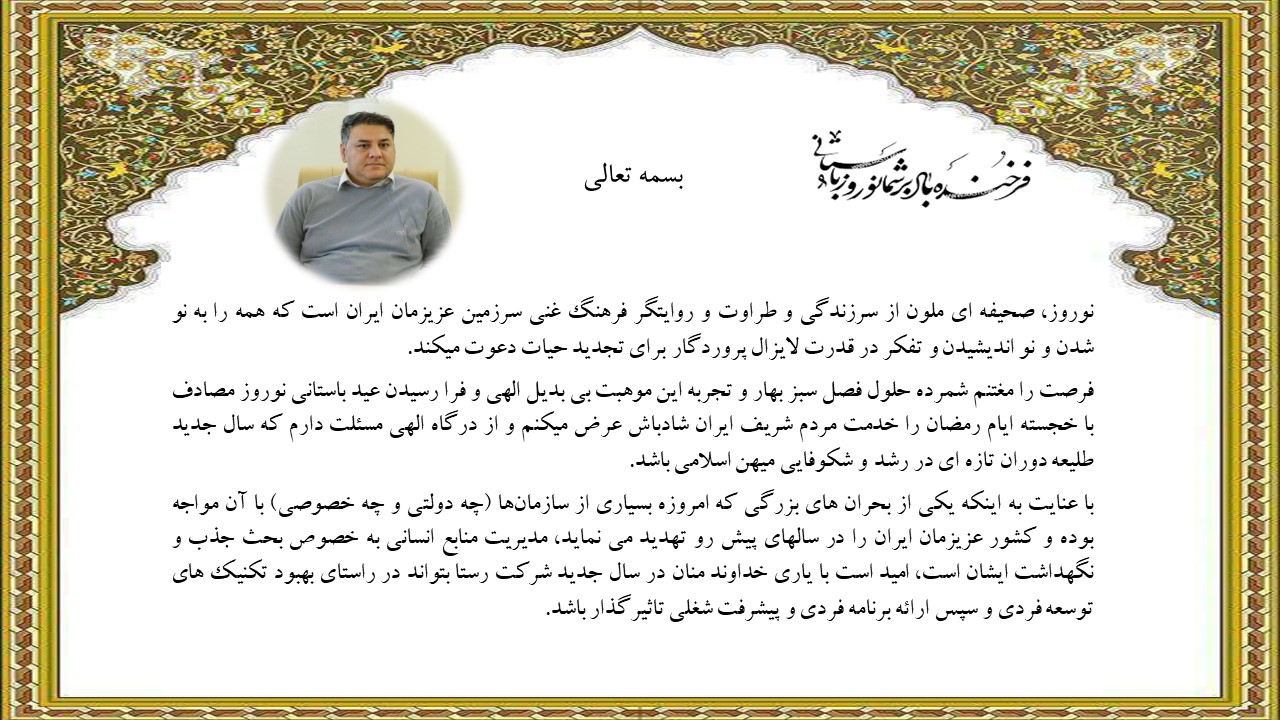 فرخنده باد بر شما نوروز باستانی
بسمه تعالی
نوروز، صحیفه ای ملون از سرزندگی و طراوت و روایتگر فرهنگ غنی سرزمین عزیزمان ایران است که همه را به نو
شدن و نو اندیشیدن و تفکر در قدرت لایزال پروردگار برای تجدید حیات دعوت میکند.
فرصت را مغتنم شمرده حلول فصل سبز بهار و تجربه این موهبت بی بدیل الهی و فرا رسیدن عید باستانی نوروز مصادف
با خجسته ایام رمضان را خدمت مردم شریف ایران شادباش عرض میکنم و از درگاه الهی مسئلت دارم که سال جدید
طلیعه دوران تازه ای در رشد و شکوفایی میهن اسلامی باشد.
با عنایت به اینکه یکی از بحران های بزرگی که امروزه بسیاری از سازمان‌ها (چه دولتی و چه خصوصی) با آن مواجه
بوده و کشور عزیزمان ایران را در سالهای پیش رو تهدید می نماید، مدیریت منابع انسانی به خصوص بحث جذب و
نگهداشت ایشان است، امید است با یاری خداوند منان در سال جدید شرکت رستا بتواند در راستای بهبود تکنیک های
توسعه فردی و سپس ارائه برنامه فردی و پیشرفت شغلی تاثیرگذار باشد.